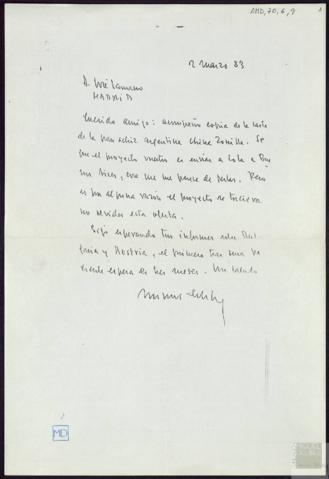 AMD, 70, 6, 9
2 marzo 83
D. José Tamayo
MADRID
Querido amigo: acompaño copia de la carta
de la gran actriz argentina China Zorrilla. Se
que el proyecto vuestro es enviar a Lola a Bue
nos Aires, cosa que me parece de perlas. Pero
si por alguna razón el proyecto se torciera
no olvides esta oferta.
Sigo esperando tus informes sobre
y, el primero tras una pa
ciente espera de tres meses. Un saludo
MD